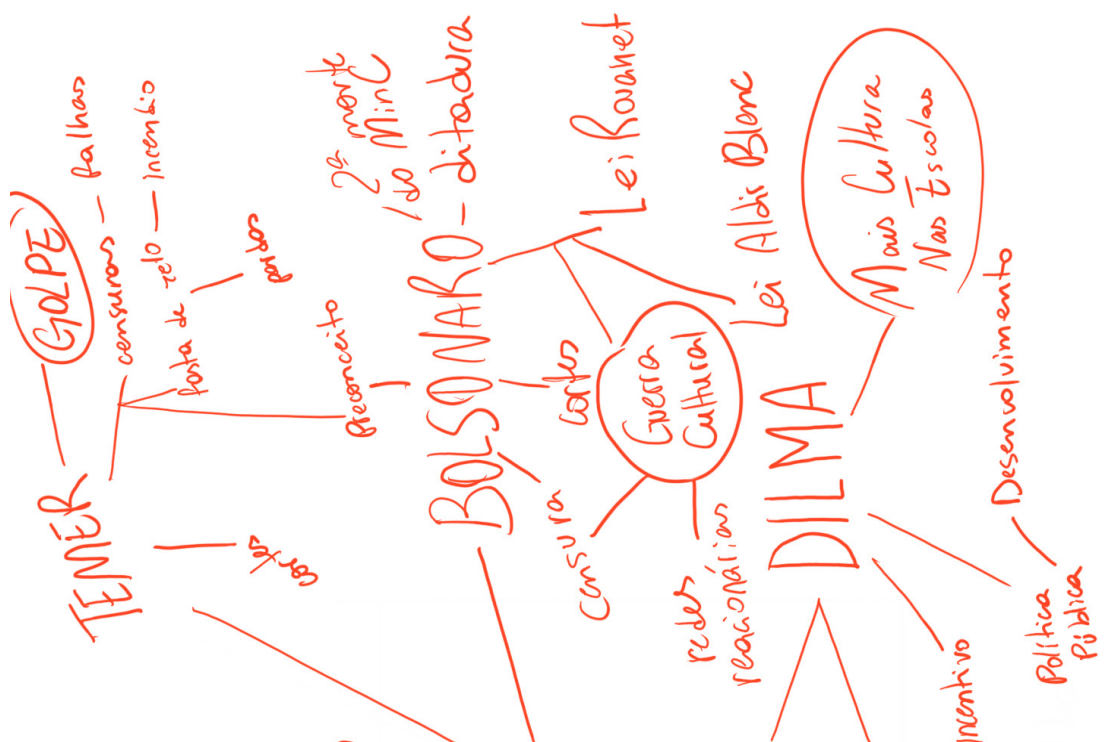 TEMER
GOLPE
censuras — falhas
fasta de zelo — incendio
perdas
cortes
preconceito
BOLSONARO - ditadura
2ª morte
do MinC
cortes
censura
Guerra
Cultural
redes
reacionárias
Lei Rouanet
Lei Aldir Blanc
DILMA
Mais Cultura
Nas Escolas
incentivo
Política
Pública
Desenvolvimento